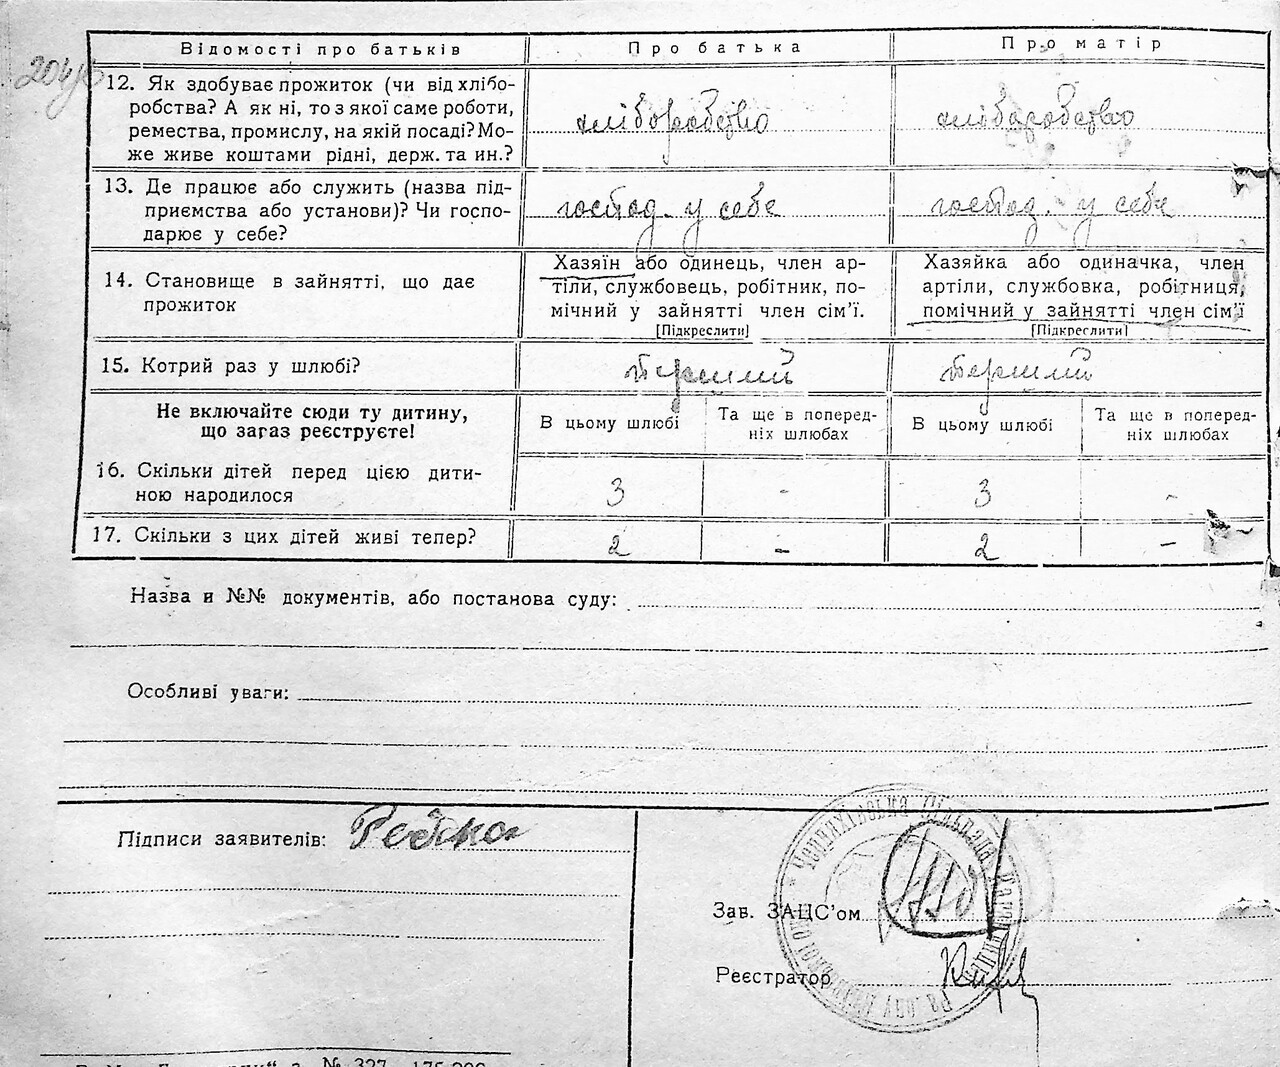 204
Відомості про батьків
Про батька
Про матір
12. Як здобуває прожиток (чи від хлібо-
робства? А як ні, то з якої саме роботи,
ремества, промислу, на якій посаді? Мо-
же живе коштами рідні, держ. та ин.?
хліборобство
хліборобство
13. Де працює або служить (назва під-
приємства або установи)? Чи госпо-
дарює у себе?
господ. у себе
господ. у себе
14. Становище в зайнятті, що дає
прожиток
Хазяїн або одинець, член ар-
тіли, службовець, робітник, по-
мічний у зайнятті член сім'ї.
[Підкреслити]
Хазяйка або одиначка, член
артіли, службовка, робітниця,
помічний у зайнятті член сім'ї
[Підкреслити]
15. Котрий раз у шлюбі?
перший
перший
Не включайте сюди ту дитину,
що зараз реєструєте!
В цьому шлюбі
Та ще в поперед-
ніх шлюбах
В цьому шлюбі
Та ще в поперед-
ніх шлюбах
16. Скільки дітей перед цією дити-
ною народилося
3
-
3
-
17. Скільки з цих дітей живі тепер?
2
-
2
-
Назва и №№ документів, або постанова суду:
Особливі уваги:
Підписи заявителів:
Зав. ЗАЦС'ом
Реєстратор
№ 327 175.000